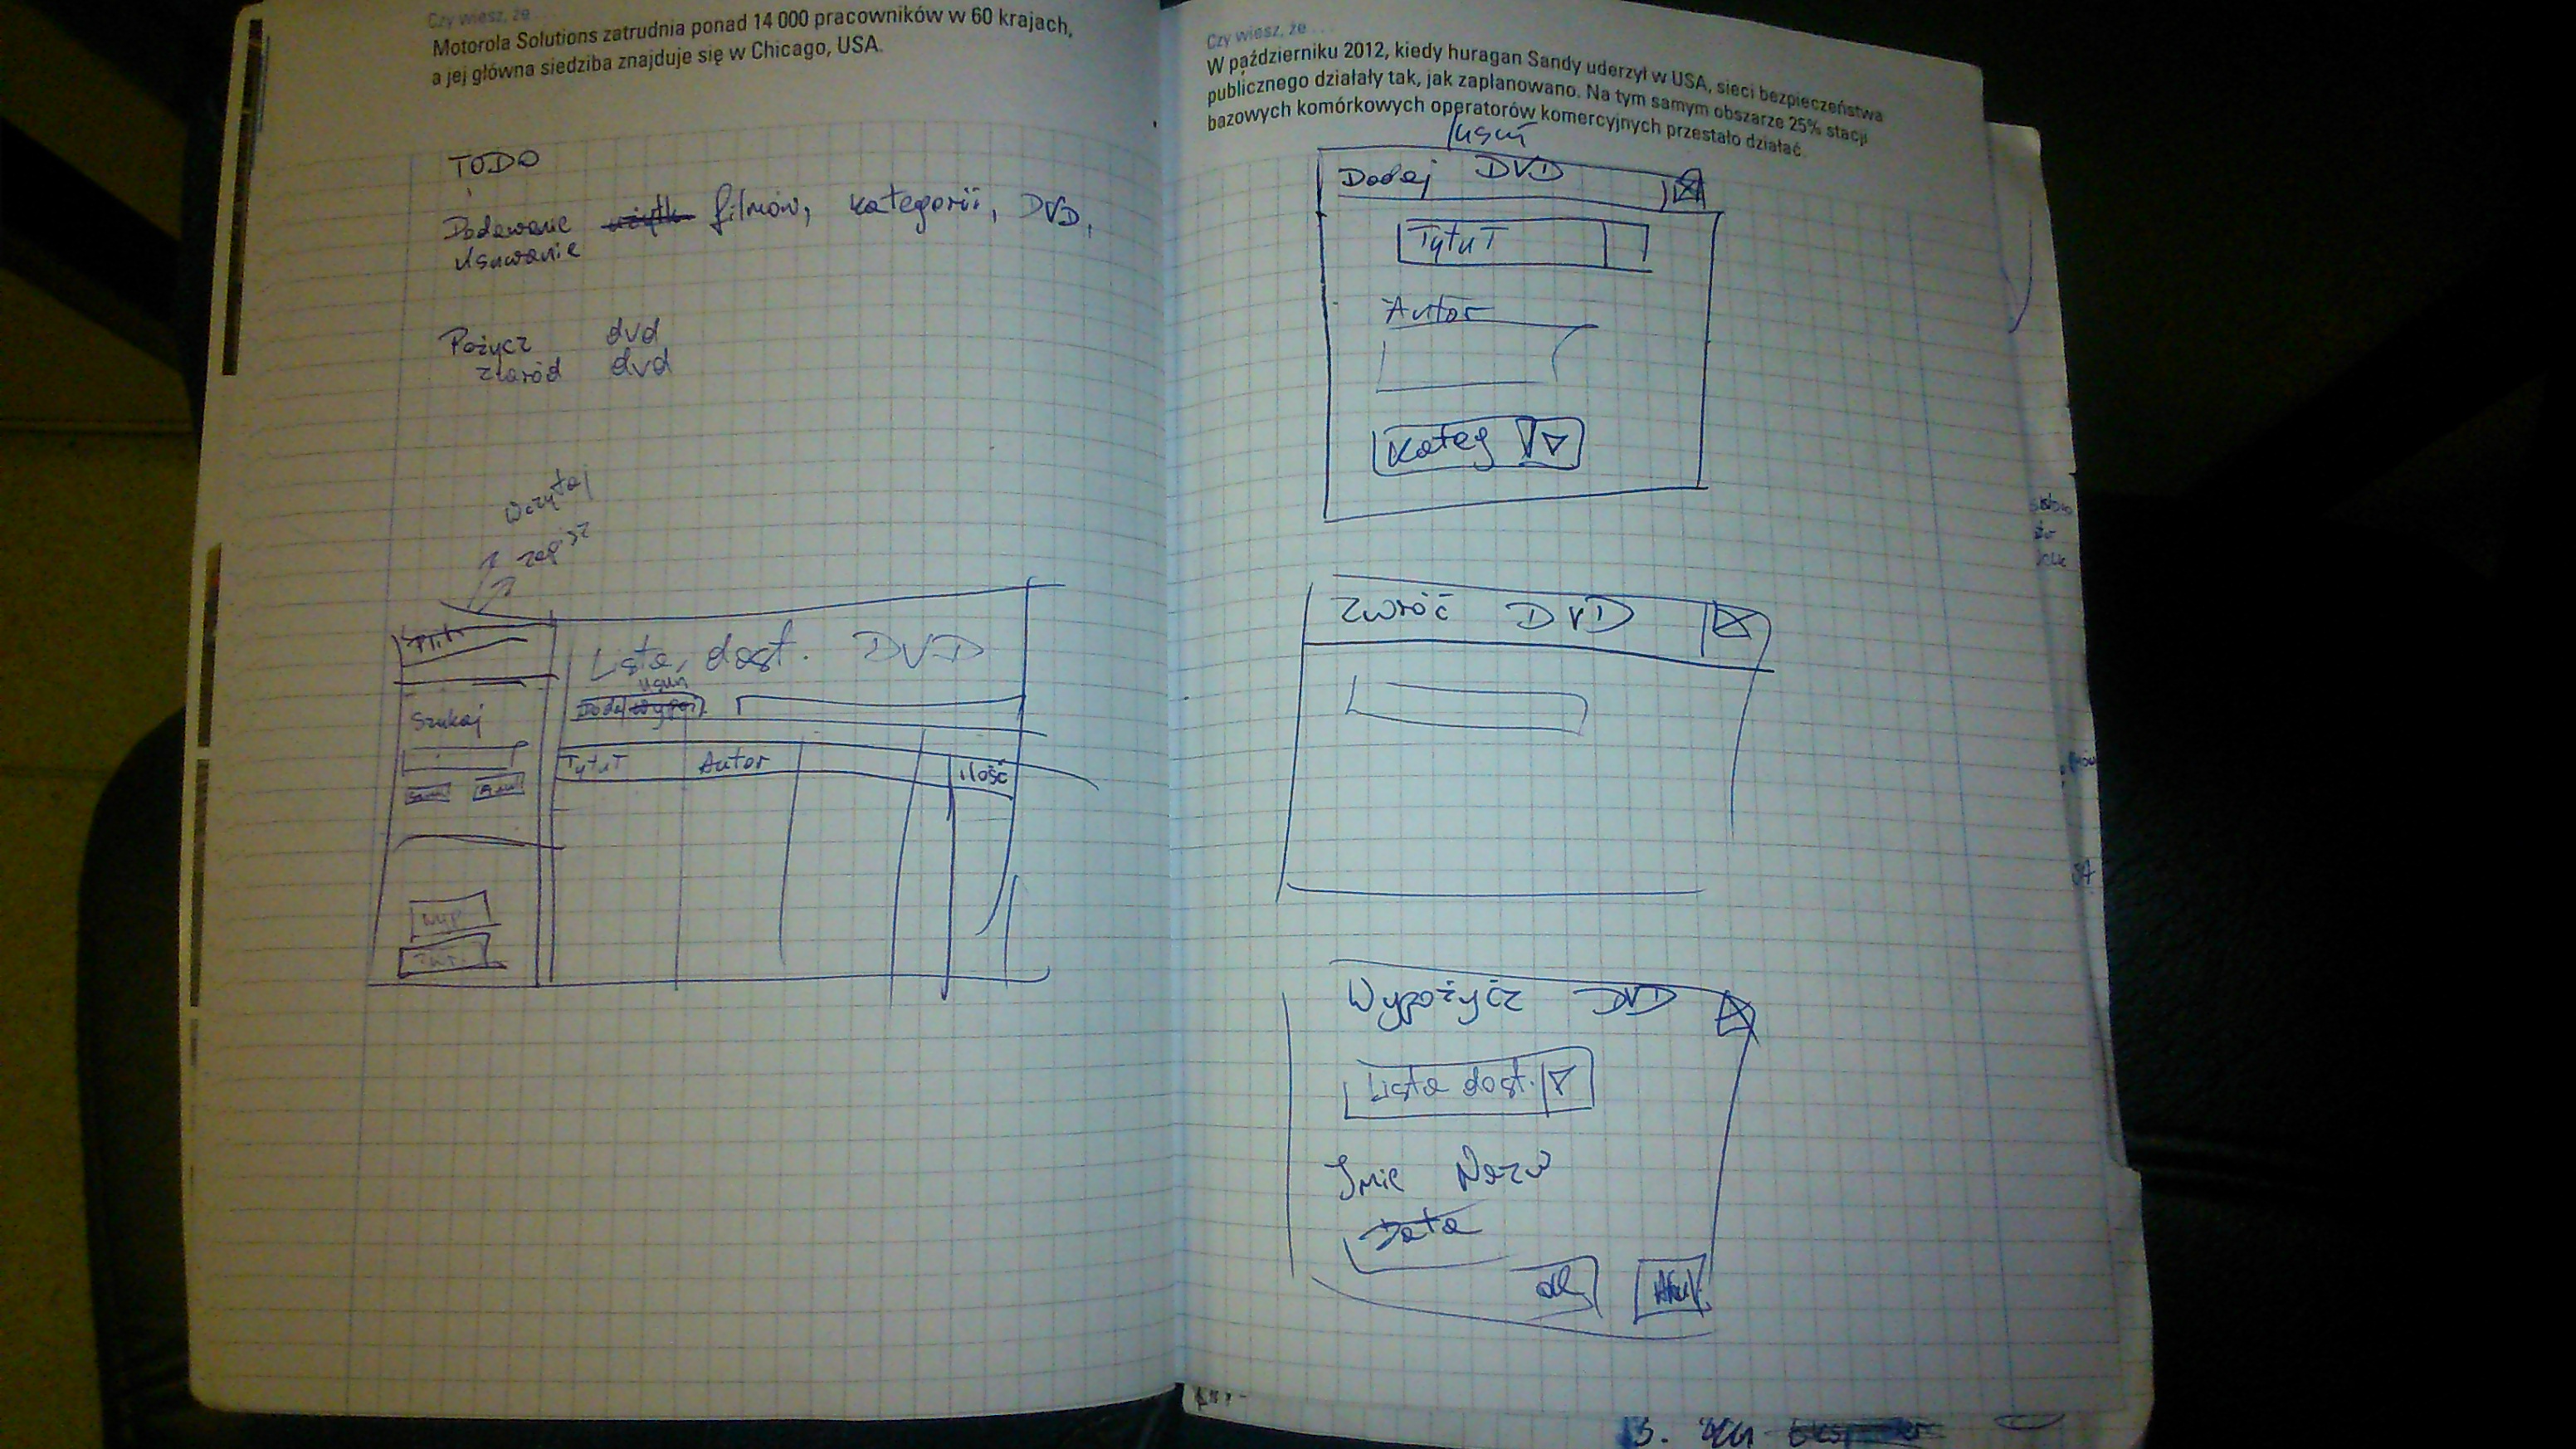 Czy wiesz, że ...
Motorola Solutions zatrudnia ponad 14 000 pracowników w 60 krajach,
a jej główna siedziba znajduje się w Chicago, USA.
TODO
Dodawanie filmów, kategorii, DVD,
Usuwanie
Pożycz dvd
zwród dvd
Wczytaj
zapisz
Lista dost. DVD
usuń
Dodaj
Szukaj
Tytuł Autor ilość
Wyp
Zwr.
Czy wiesz, że ...
W październiku 2012, kiedy huragan Sandy uderzył w USA, sieci bezpieczeństwa
publicznego działały tak, jak zaplanowano. Na tym samym obszarze 25% stacji
bazowych komórkowych operatorów komercyjnych przestało działać.
/usuń
Dodaj DVD
Tytuł
Autor
Kateg
Zwróć DVD
Wypożycz DVD
Lista dost.
Imie Nazw
Data
ok Anul